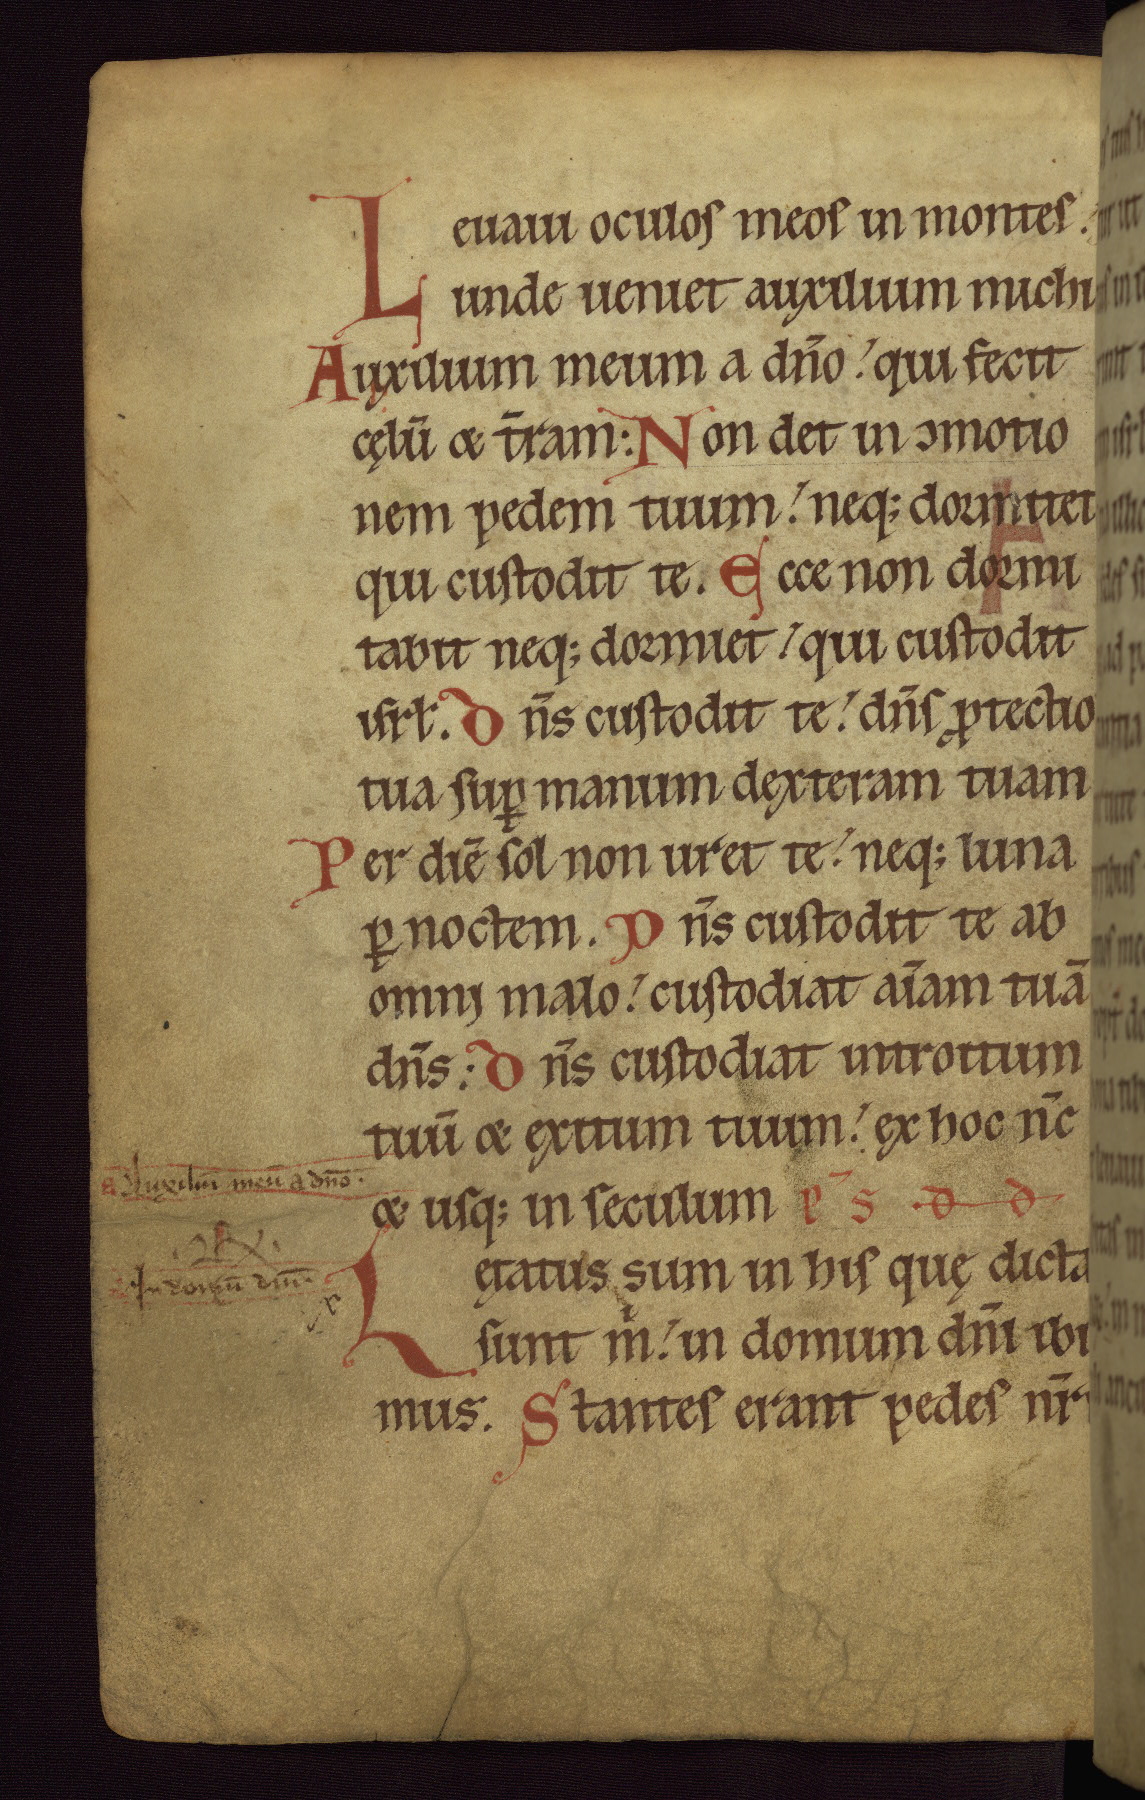 Leuaui oculos meos in montes.
unde ueniet auxilium michi
Auxilium meum a dño! qui fecit
cęlū & t̄ram: Non det in ɔmotio
nem pedem tuum! neq; dormitet
qui custodit te. Ecce non dormi
tabit neq; dormiet! qui custodit
isrł. Dñs custodit te! dñs ꝓtectio
tua sup̱ manum dexteram tuam
Per diē sol non uret te! neq; luna
ꝑ noctem. Dñs custodit te ab
omni malo! custodiat aīam tuā
dñs: Dñs custodiat introitum
tuū & exitum tuum! ex hoc nc̄
Auxiliū meū a dño.
& usq; in seculum p̄s dd
In domū dñi.
Lętatus sum in his quę dicta
sunt m̍! in domum dñi ibi
mus. Stantes erant pedes nr̄i